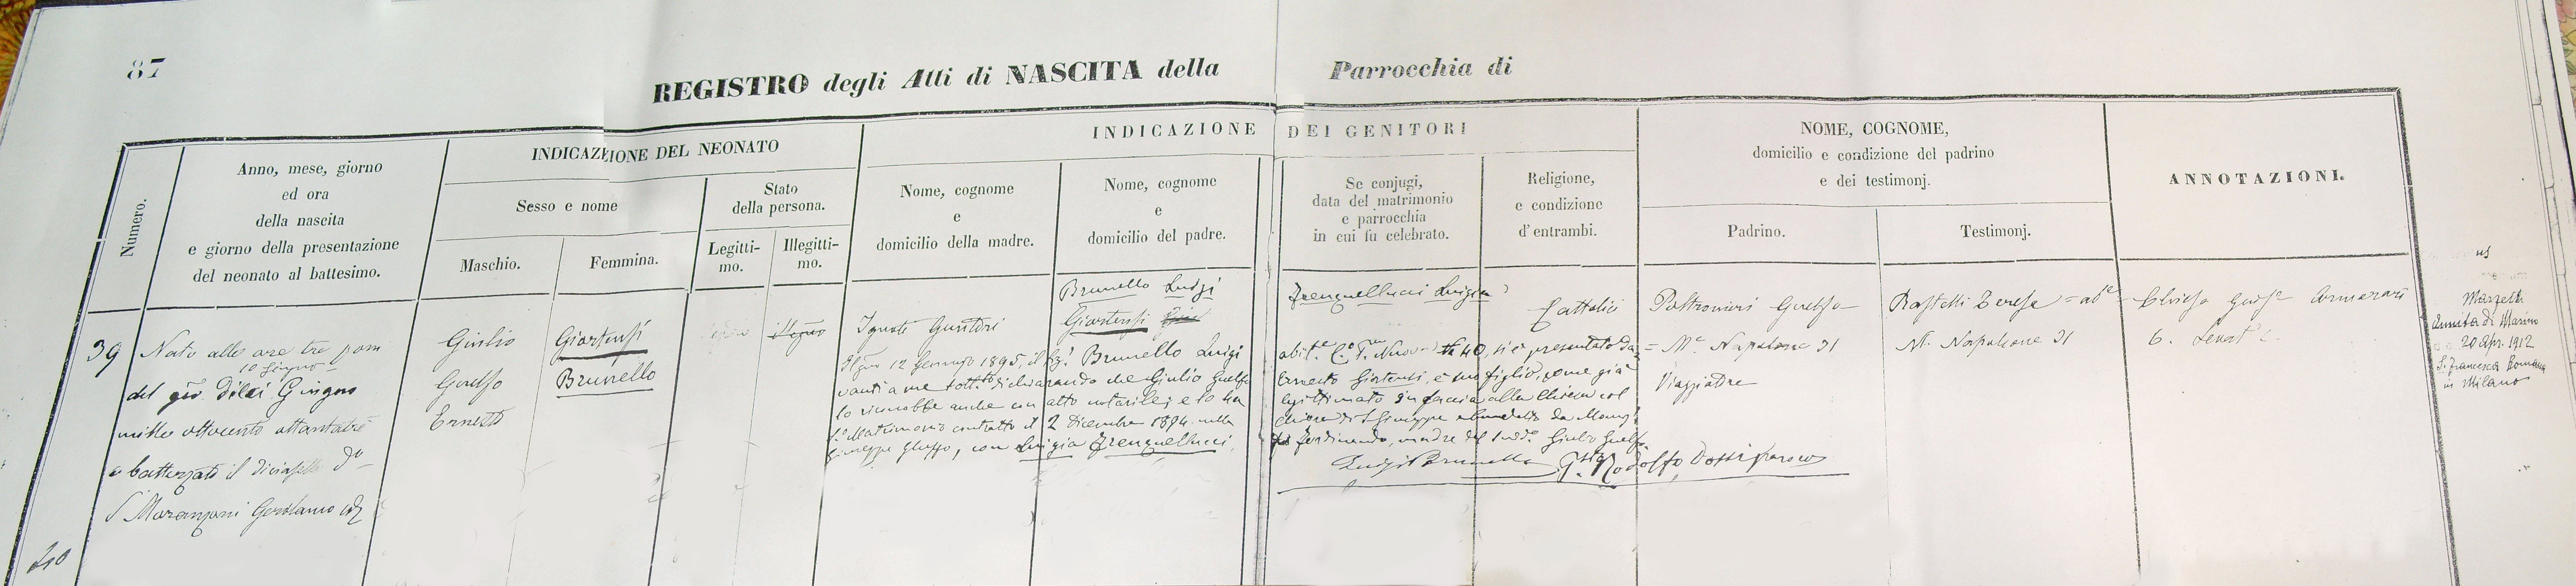 87
REGISTRO degli Atti di NASCITA della Parrocchia di
Numero.
Anno, mese, giorno
ed ora
della nascita
e giorno della presentazione
del neonato al battesimo.
INDICAZIONE DEL NEONATO
Sesso e nome
Maschio.
Femmina.
Stato
della persona.
Legitti-
mo.
Illegitti-
mo.
INDICAZIONE DEI GENITORI
Nome, cognome
e
domicilio della madre.
Nome, cognome
e
domicilio del padre.
Se conjugi,
data del matrimonio
e parrocchia
in cui fu celebrato.
Religione,
e condizione
d'entrambi.
NOME, COGNOME,
domicilio e condizione del padrino
e dei testimonj.
Padrino.
Testimonj.
ANNOTAZIONI.
39
Nato alle ore tre pom
10 Giugno
del gno dieci Giugno
mille ottocento ottantatre
e battezzato il diciasette do
Maranzani Gerolamo
Giulio
Guelfo
Ernesto
Giortensi
Brunello
Ignoti Genitori
Brunello Luigi
Giortensi
Il gno 12 Gennajo 1895, il Sig. Brunello Luigi
vanti a me sottto dichiarando che Giulio Guelfo
lo riconobbe anche con atto notarile; e lo ha
Matrimonio contratto il 2 Dicembre 1894 nella
Giuseppe, con Luigia Frenquellucci,
Frenquellucci Luigia
40, si è presentato da
Ernesto Giortensi, è suo figlio, come già
legittimato in faccia alla Chiesa col
chiesa di S Giuseppe
Ferdinando, madre del sudd. Giulio Guelfo
Luigi Brunello
Rodolfo Dossi parroco
Cattolici
Guelfo
= Mte Napoleone 31
Viaggiatore
Rastelli Teresa = abte
M. Napoleone 31
6.
Marzetti
Annita di Marino
20 Apr. 1912
S. Francesca Romana
in Milano
40